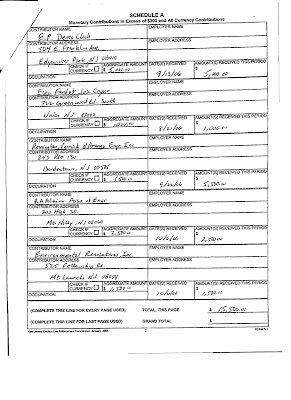 SCHEDULE A
Monetary Contributions in Excess of $300 and All Currency Contributions
CONTRIBUTOR NAME EMPLOYER NAME
E.P. Demo Club
CONTRIBUTOR ADDRESS EMPLOYER ADDRESS
504 E. Franklin Ave
Edgewater Park NJ 08010
CHECK IF CURRENCY AGGREGATE AMOUNT DATE(S) RECEIVED AMOUNT(S) RECEIVED THIS PERIOD
$ 5,000.00 9/13/06 5,000.00
OCCUPATION
CONTRIBUTOR NAME EMPLOYER NAME
CONTRIBUTOR ADDRESS EMPLOYER ADDRESS
Greenwood Rd. South
Union NJ
CHECK IF CURRENCY AGGREGATE AMOUNT DATE(S) RECEIVED AMOUNT(S) RECEIVED THIS PERIOD
$ 1000.00 1,000.00
OCCUPATION
CONTRIBUTOR NAME EMPLOYER NAME
Remington, Vernick & Arango Eng. Inc
CONTRIBUTOR ADDRESS EMPLOYER ADDRESS
243 RTE 130
Bordentown NJ 08505
CHECK IF CURRENCY AGGREGATE AMOUNT DATE(S) RECEIVED AMOUNT(S) RECEIVED THIS PERIOD
$ 5,500.00 5,500.00
OCCUPATION
CONTRIBUTOR NAME EMPLOYER NAME
CONTRIBUTOR ADDRESS EMPLOYER ADDRESS
200 High St.
Mt. Holly NJ 08060
CHECK IF CURRENCY AGGREGATE AMOUNT DATE(S) RECEIVED AMOUNT(S) RECEIVED THIS PERIOD
$ 2,500.00 10/6/06 2,500.00
OCCUPATION
CONTRIBUTOR NAME EMPLOYER NAME
Environmental Resolutions, Inc.
CONTRIBUTOR ADDRESS EMPLOYER ADDRESS
525 Fellowship Rd.
Mt. Laurel NJ 08054
CHECK IF CURRENCY AGGREGATE AMOUNT DATE(S) RECEIVED AMOUNT(S) RECEIVED THIS PERIOD
$ 1,500.00 10/6/06 1,500.00
OCCUPATION
(COMPLETE THIS LINE FOR EVERY PAGE USED) TOTAL THIS PAGE $ 15,500.00
(COMPLETE THIS LINE FOR LAST PAGE USED) GRAND TOTAL $
New Jersey Election Law Enforcement Commission